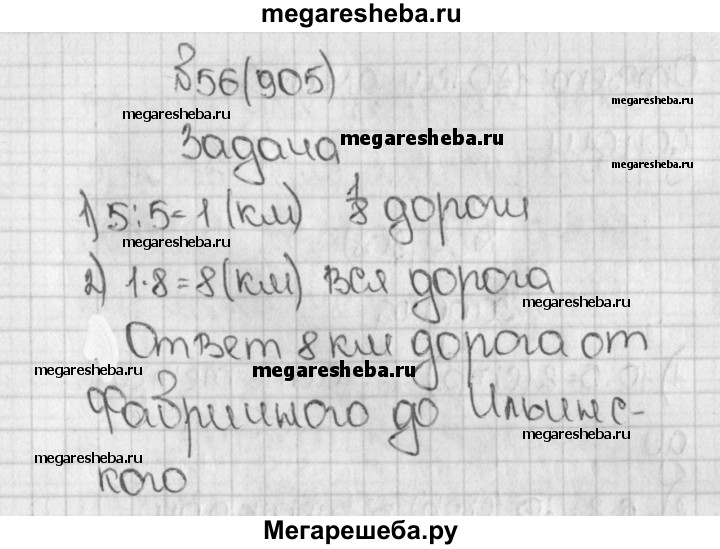 megaresheba.ru
№56(905)
megaresheba.ru
megaresheba.ru
Задача
megaresheba.ru
megaresheba.ru
1) 5:5=1 (км) 1/8 дороги
megaresheba.ru
2) 1·8=8(км) вся дорога
megaresheba.ru
Ответ 8 км дорога от
megaresheba.ru
megaresheba.ru
Фабричного до Ильинс-
megaresheba.ru
megaresheba.ru
кого
Мегарешеба.ру